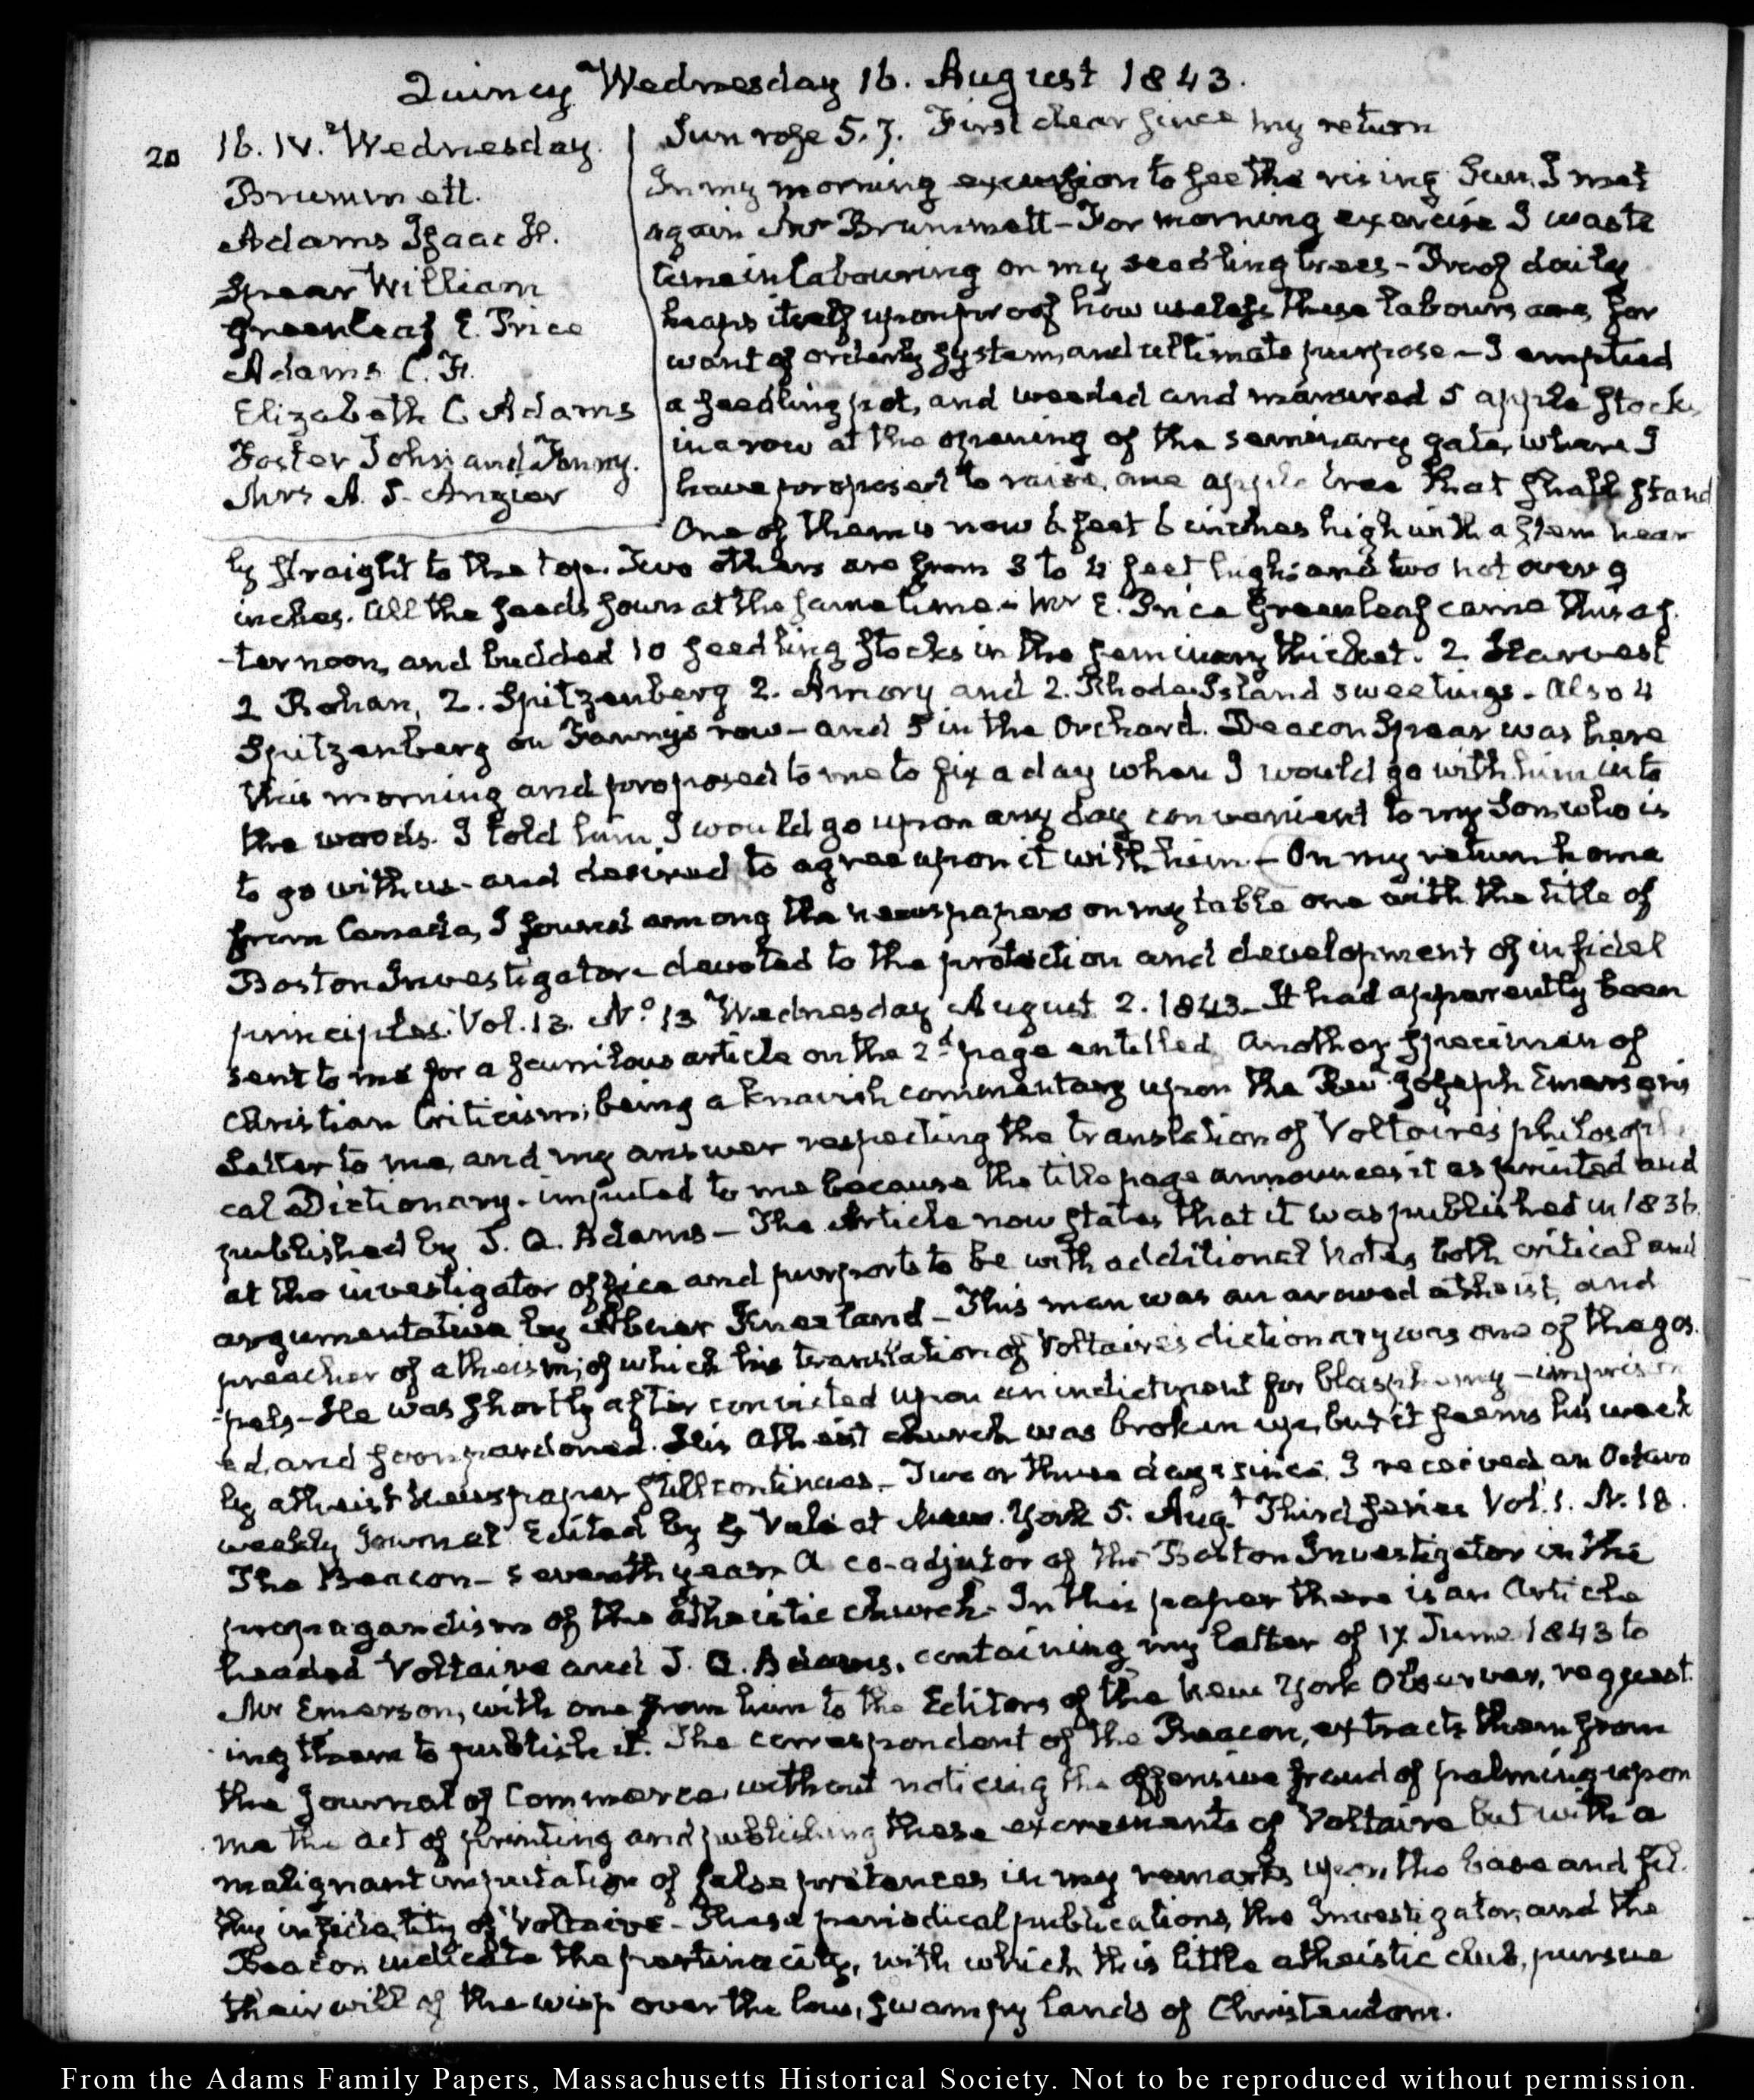 Quincy Wednesday 16. August 1843.
20
16. IV. Wednesday.
Brummett.
Adams Isaac H.
Spear William
Greenleaf E. Price
Adams C. F.
Elizabeth C Adams
Foster John and Fanny.
Mrs A. S. Angier
Sun rose 5.7. First clear since my return
In my morning excursion to see the rising Sun, I met
again Mr Brummett – For morning exercise I waste
time in labouring on my seedling trees – Proof daily
heaps itself upon proof how useless these labours are, for
want of orderly system, and ultimate purpose – I emptied
a seedling pot, and weeded and manured 5 apple stocks
in a row at the opening of the seminary gate, where I
have proposed to raise, one apple tree that shall stand
One of them is now 6 feet 6 inches high with a stem near
ly straight to the top. Two others are from 3 to 4 feet high: and two not over 9
inches. All the seeds sown at the same time – Mr E. Price Greenleaf came this af
-ternoon, and budded 10 seedling stocks in the seminary thicket. 2 Harvest
2 Rohan, 2. Spitzenberg 2. Amory and 2. Rhode Island sweetings. Also 4
Spitzenberg on Fanny's row – and 5 in the Orchard. Deacon Spear was here
this morning and proposed to me to fix a day when I would go with him into
the woods. I told him I would go upon any day convenient to my Son who is
to go with us – and desired to agree upon it with him – On my return home
from Canada, I found among the newspapers on my table one with the title of
Boston Investigator – devoted to the protection and development of infidel
principles. Vol. 13. No. 13 Wednesday August 2. 1843 – It had apparently been
sent to me for a scurrilous article on the 2d page entitled Another specimen of
Christian Criticism; being a knavish commentary upon the Revd. Joseph Emerson's
Letter to me, and my answer respecting the translation of Voltaire's philosophi
cal Dictionary – imputed to me because the title page announces it as printed and
published by J. Q. Adams – The Article now states that it was published in 1836.
at the investigator office and purports to be with additional Notes both critical and
argumentative by Abner Kneeland – This man was an avowed atheist, and
preacher of atheism; of which his translation of Voltaire's dictionary was one of the gos
-pels – He was shortly after convicted upon an indictment for blasphemy – imprison
ed, and soon pardoned. His atheist church was broken up, but it seems his week
ly atheist newspaper still continues – Two or three days since, I received an Octavo
weekly Journal Edited by G Vale at New York 5. Augt Third series Vol. 1. N. 18.
The Beacon – seventh year. A co-adjutor of the Boston Investigator in the
propagandism of the atheistic church – In this paper there is an Article
headed Voltaire and J. Q. Adams, containing my letter of 17 June 1843 to
Mr Emerson, with one from him to the Editors of the New York Observer, request
ing them to publish it. The correspondent of the Beacon, extracts them from
the Journal of Commerce, without noticing the offensive fraud of palming upon
me the act of printing and publishing these excrements of Voltaire but with a
malignant imputation of false pretences in my remarks upon the base and fil
thy infidelity of Voltaire – These periodical publications, the Investigator, and the
Beacon indicate the pertinacity, with which this little atheistic club, pursue
their will of the wisp over the low, swampy lands of Christendom.
From the Adams Family Papers, Massachusetts Historical Society. Not to be reproduced without permission.